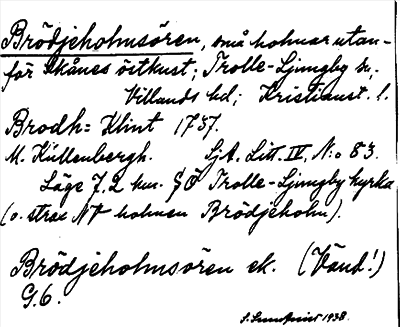 Brödjeholmsören, små holmar utan-
för Skånes östkust; Trolle-Ljungby sn,
Villands hd; Kristianst. l.
Brodh = Klint 1737.
M. Küllenbergh. SjA. Litt. IV, N:o 83.
Läge 7.2 km. SO Trolle-Ljungby kyrka
(o. strax NV holmen Brödjeholm).
Brödjeholmsören ek. (Vänd!)
G.6.
1938.